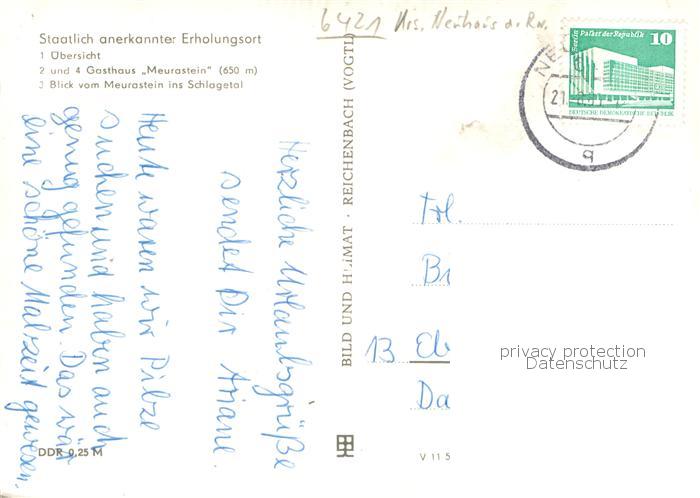 6421 Krs. Neuhaus a. Rw.
Staatlich anerkannter Erholungsort
1 Übersicht
2 und 4 Gasthaus „Meurastein" (650 m)
3 Blick vom Meurastein ins Schlagetal
Berlin Palast der Republik
10
DEUTSCHE DEMOKRATISCHE REPUBLIK
NE
21
g
Herzliche Urlaubsgrüße
sendet Dir Ariane.
Heute waren wir Pilze
suchen und haben auch
genug gefunden. Das wär
eine schöne Malzeit gewesen.
BILD UND HEIMAT · REICHENBACH (VOGTL)
Frl.
Br
13 Eb
Da
privacy protection
Datenschutz
DDR 0,25 M
V 11 5